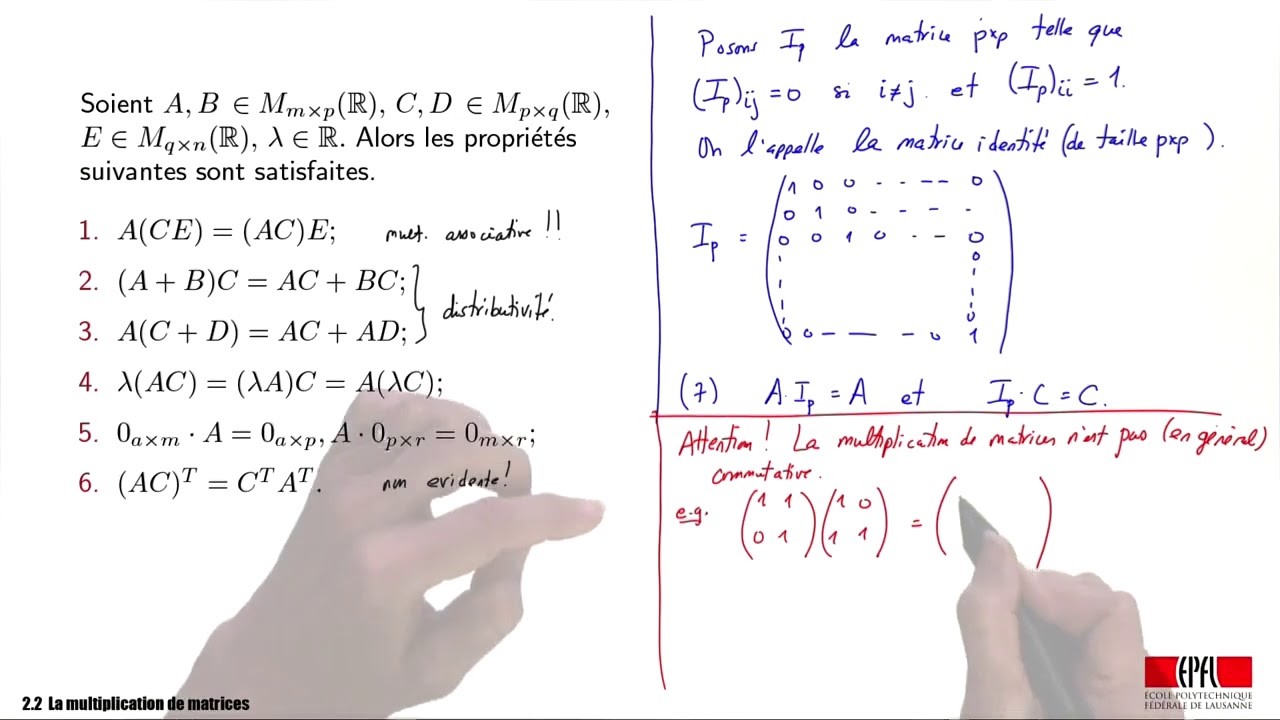 Soient A, B ∈ M_{m×p}(ℝ), C, D ∈ M_{p×q}(ℝ),
E ∈ M_{q×n}(ℝ), λ ∈ ℝ. Alors les propriétés
suivantes sont satisfaites.
1. A(CE) = (AC)E; mult. associative !!
2. (A + B)C = AC + BC;
3. A(C + D) = AC + AD;
distributivité.
4. λ(AC) = (λA)C = A(λC);
5. 0_{a×m} · A = 0_{a×p}, A · 0_{p×r} = 0_{m×r};
6. (AC)^T = C^T A^T. non evidente!
Posons I_p la matrice p×p telle que
(I_p)_{ij} = 0 si i≠j. et (I_p)_{ii} = 1.
On l'appelle la matrice identité (de taille p×p).
1 0 0 - - -- 0
0 1 0 - - - -
I_p = 0 0 1 0 - - - 0
0
0
0 0 - — - 0 1
(7) A·I_p = A et I_p·C = C.
Attention! La multiplication de matrices n'est pas (en général)
commutative.
e.g. (1 1) (1 0) = ( )
(0 1) (1 1)
2.2 La multiplication de matrices
EPFL
ÉCOLE POLYTECHNIQUE
FÉDÉRALE DE LAUSANNE